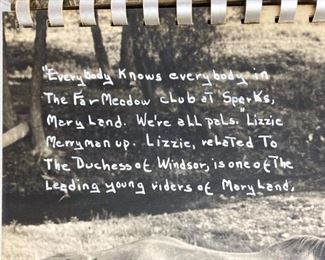 "Everybody knows everybody in
The Far Meadow club at Sparks,
Mary Land. We're all pals." Lizzie
Merryman up. Lizzie, related To
The Duchess of Windsor, is one of The
Leading young riders of Mary Land.